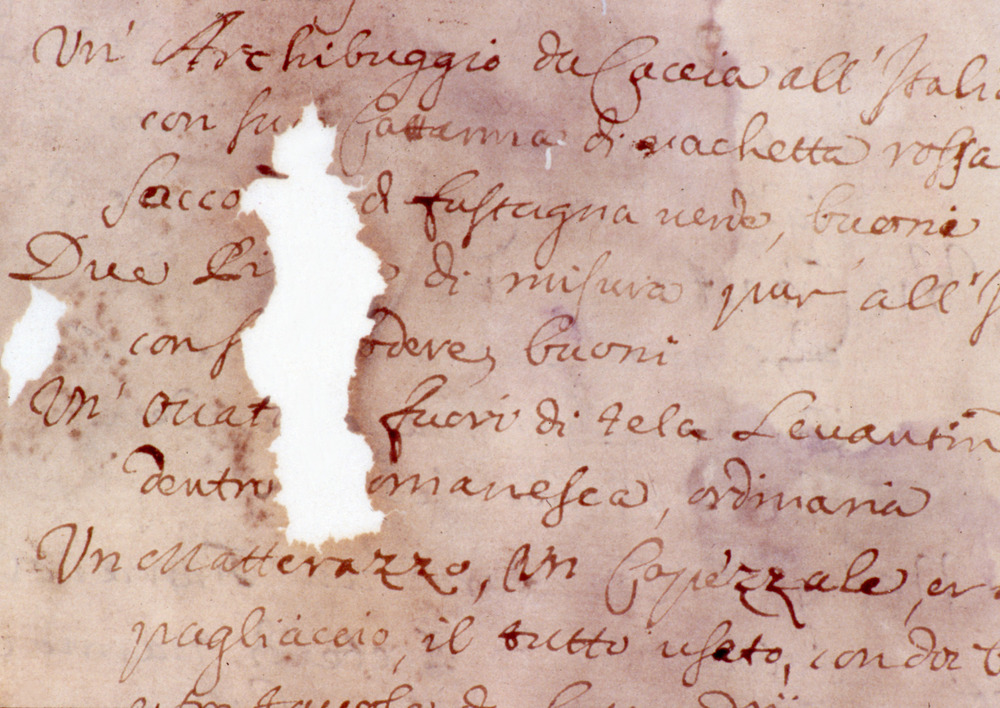 Un' Archibuggio da Caccia all' Itali
con su di vachetta rossa
sacco d fustagna uerde, buoni
Due Pi di misura pur all' I
con f odere, buoni
Un' ouat fuori di tela Leuantin
dentro omanesca, ordinaria
Un Matterazzo, Un Capezzale, et
pagliaccio, il tutto usato, con doi